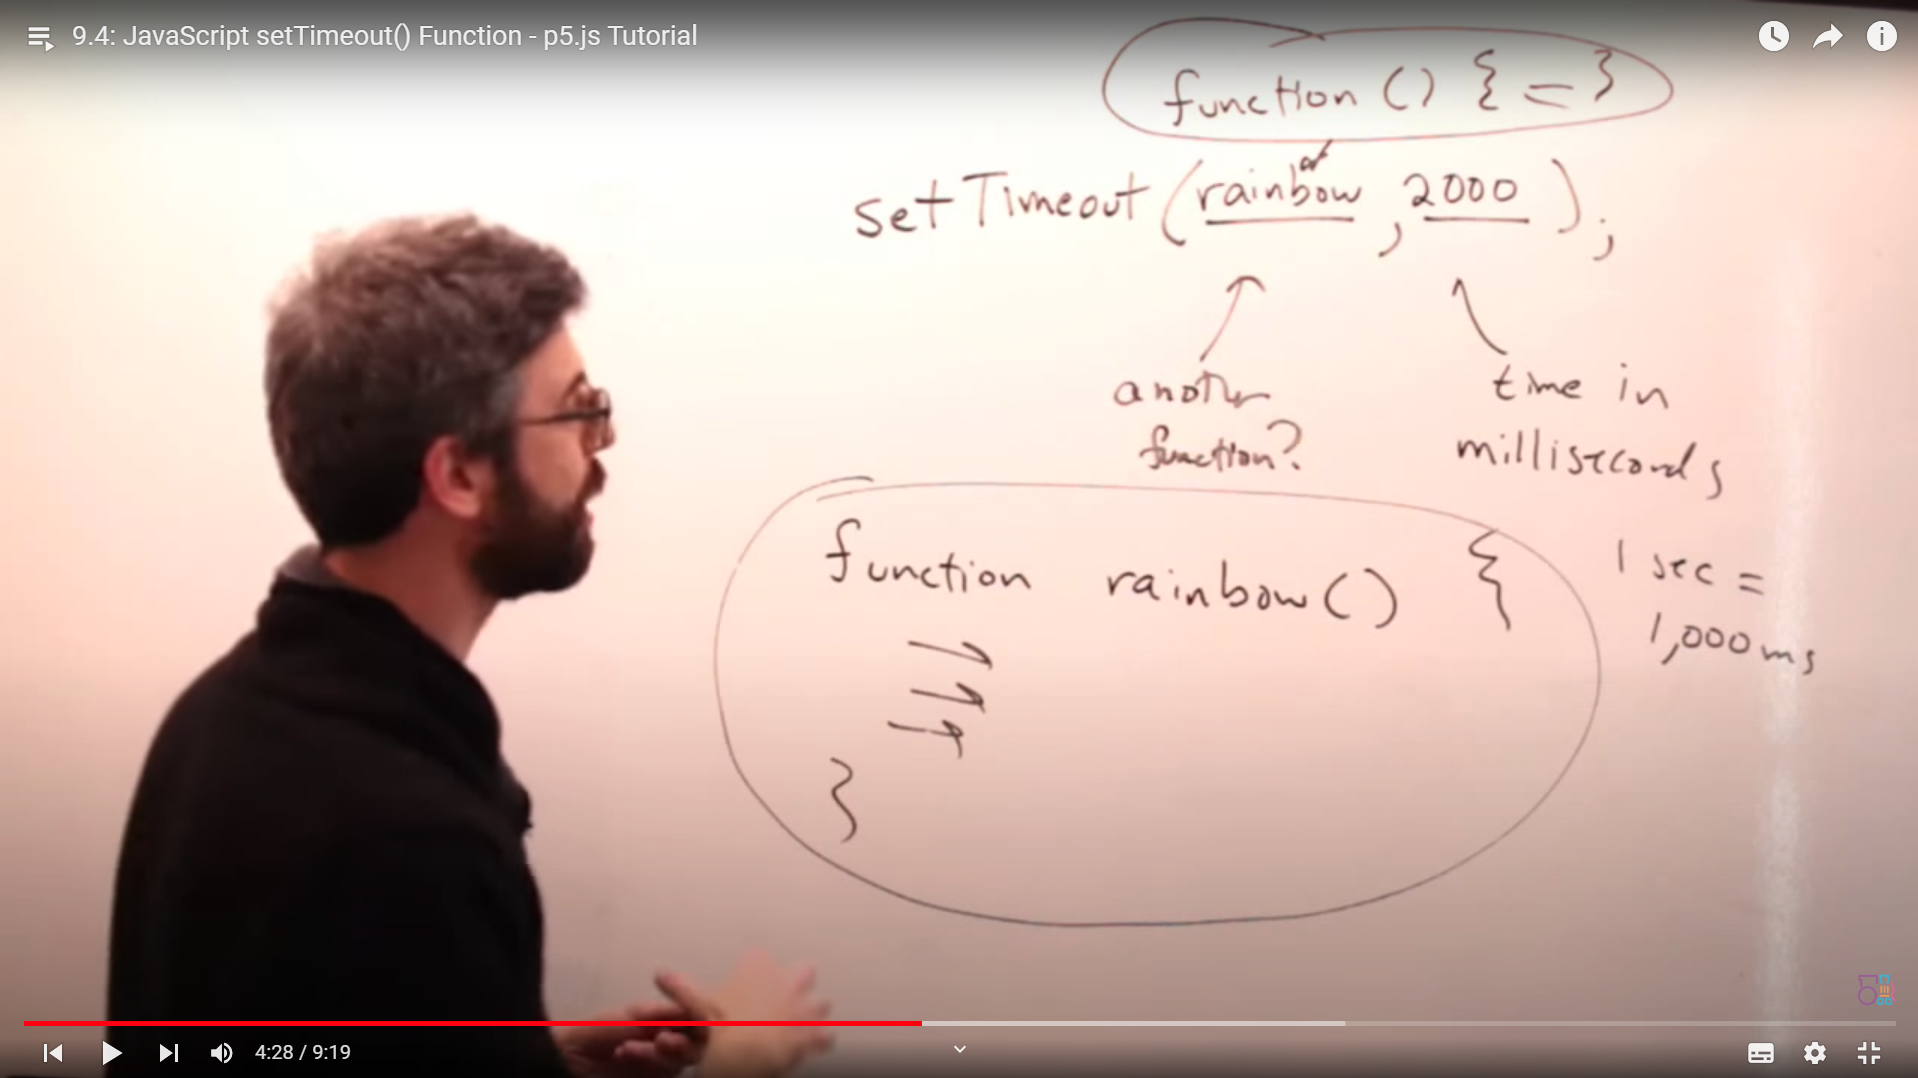 9.4: JavaScript setTimeout() Function - p5.js Tutorial
function () { = }
or
setTimeout (rainbow, 2000);
another
function?
time in
milliseconds
function rainbow() {
}
1 sec =
1,000 ms
4:28 / 9:19